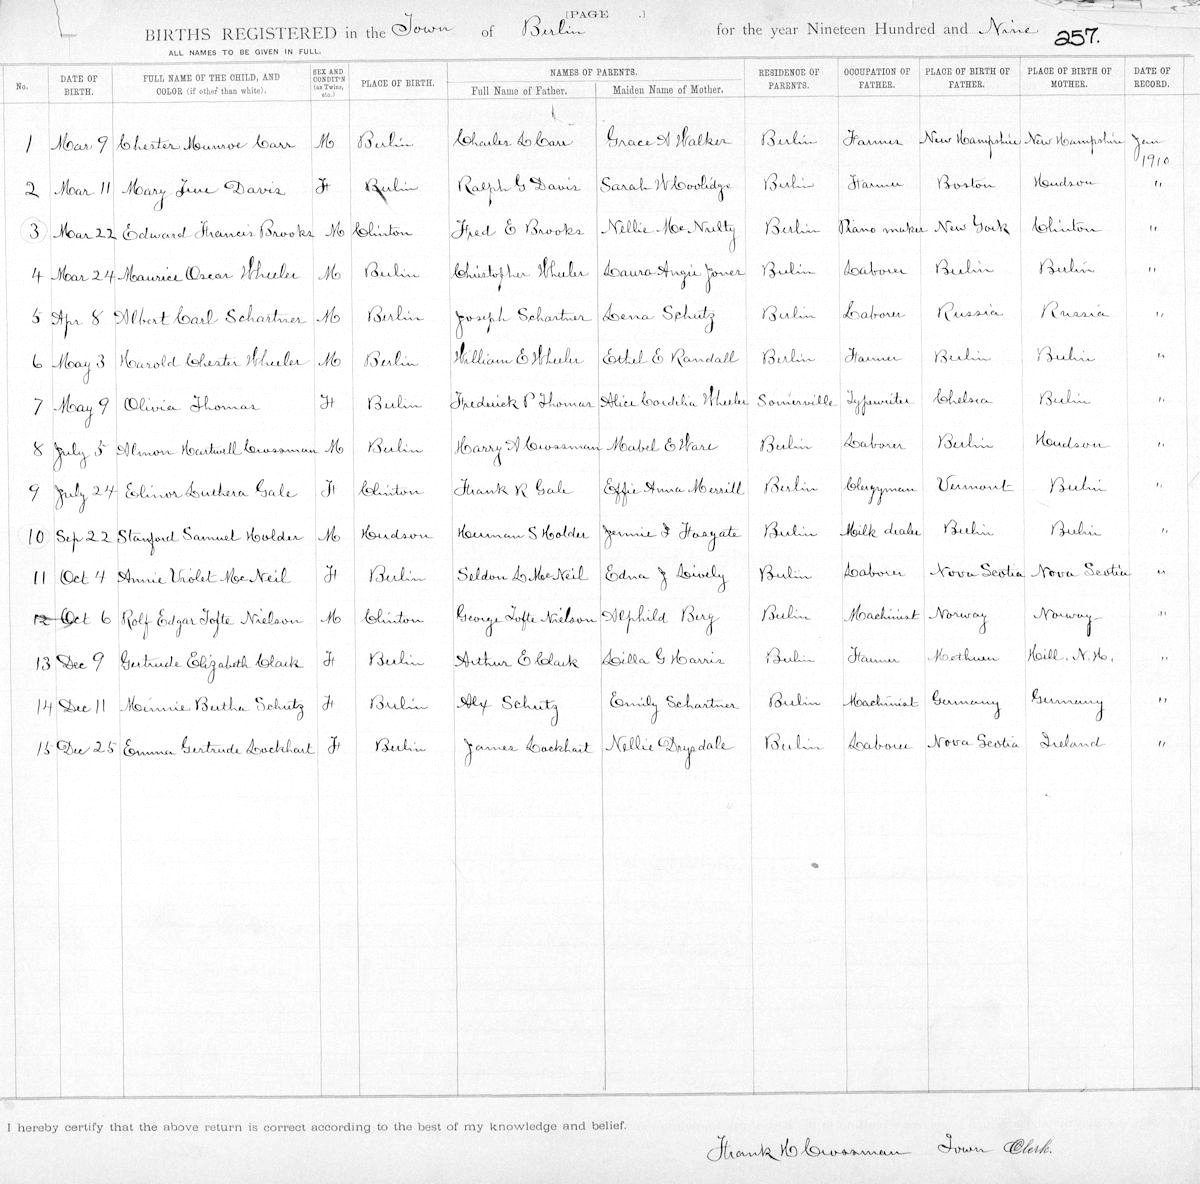 [PAGE .]
BIRTHS REGISTERED in the Town of Berlin for the year Nineteen Hundred and Nine 257.
ALL NAMES TO BE GIVEN IN FULL.
No. DATE OF BIRTH. FULL NAME OF THE CHILD, AND COLOR (if other than white). SEX AND CONDIT'N (as Twins, etc.) PLACE OF BIRTH. NAMES OF PARENTS. Full Name of Father. Maiden Name of Mother. RESIDENCE OF PARENTS. OCCUPATION OF FATHER. PLACE OF BIRTH OF FATHER. PLACE OF BIRTH OF MOTHER. DATE OF RECORD.
1 Mar 9 Chester Munroe Carr M Berlin Charles L Carr Grace A Walker Berlin Farmer New Hampshire New Hampshire Jan 1910
2 Mar 11 Mary June Davis F Berlin Ralph G Davis Sarah W Coolidge Berlin Farmer Boston Hudson "
3 Mar 22 Edward Francis Brooks M Clinton Fred E Brooks Nellie McNulty Berlin Piano maker New York Clinton "
4 Mar 24 Maurice Oscar Wheeler M Berlin Christopher Wheeler Laura Angie Jones Berlin Laborer Berlin Berlin "
5 Apr 8 Albert Carl Schartner M Berlin Joseph Schartner Lena Schutz Berlin Laborer Russia Russia "
6 May 3 Harold Chester Wheeler M Berlin William E Wheeler Ethel E Randall Berlin Farmer Berlin Berlin "
7 May 9 Olivia Thomas F Berlin Frederick P Thomas Alice Cordelia Wheeler Somerville Typewriter Chelsea Berlin "
8 July 5 Almon Hartwell Crossman M Berlin Harry A Crossman Mabel E Ware Berlin Laborer Berlin Hudson "
9 July 24 Elinor Luthera Gale F Clinton Frank R Gale Effie Anna Merrill Berlin Clergyman Vermont Berlin "
10 Sep 22 Stanford Samuel Holder M Hudson Herman S Holder Jennie F Fosgate Berlin Milk dealer Berlin Berlin "
11 Oct 4 Annie Violet McNeil F Berlin Seldon L McNeil Edna J Lively Berlin Laborer Nova Scotia Nova Scotia "
12 Oct 6 Rolf Edgar Tofte Nielson M Clinton George Tofte Nielson Alphild Berg Berlin Machinist Norway Norway "
13 Dec 9 Gertrude Elizabeth Clark F Berlin Arthur E Clark Lilla G Harris Berlin Farmer Methuen Hill, N.H. "
14 Dec 11 Minnie Bertha Schutz F Berlin Alex Schutz Emily Schartner Berlin Machinist Germany Germany "
15 Dec 25 Emma Gertrude Lockhart F Berlin James Lockhart Nellie Drysdale Berlin Laborer Nova Scotia Ireland "
I hereby certify that the above return is correct according to the best of my knowledge and belief.
Frank H Crossman Town Clerk.